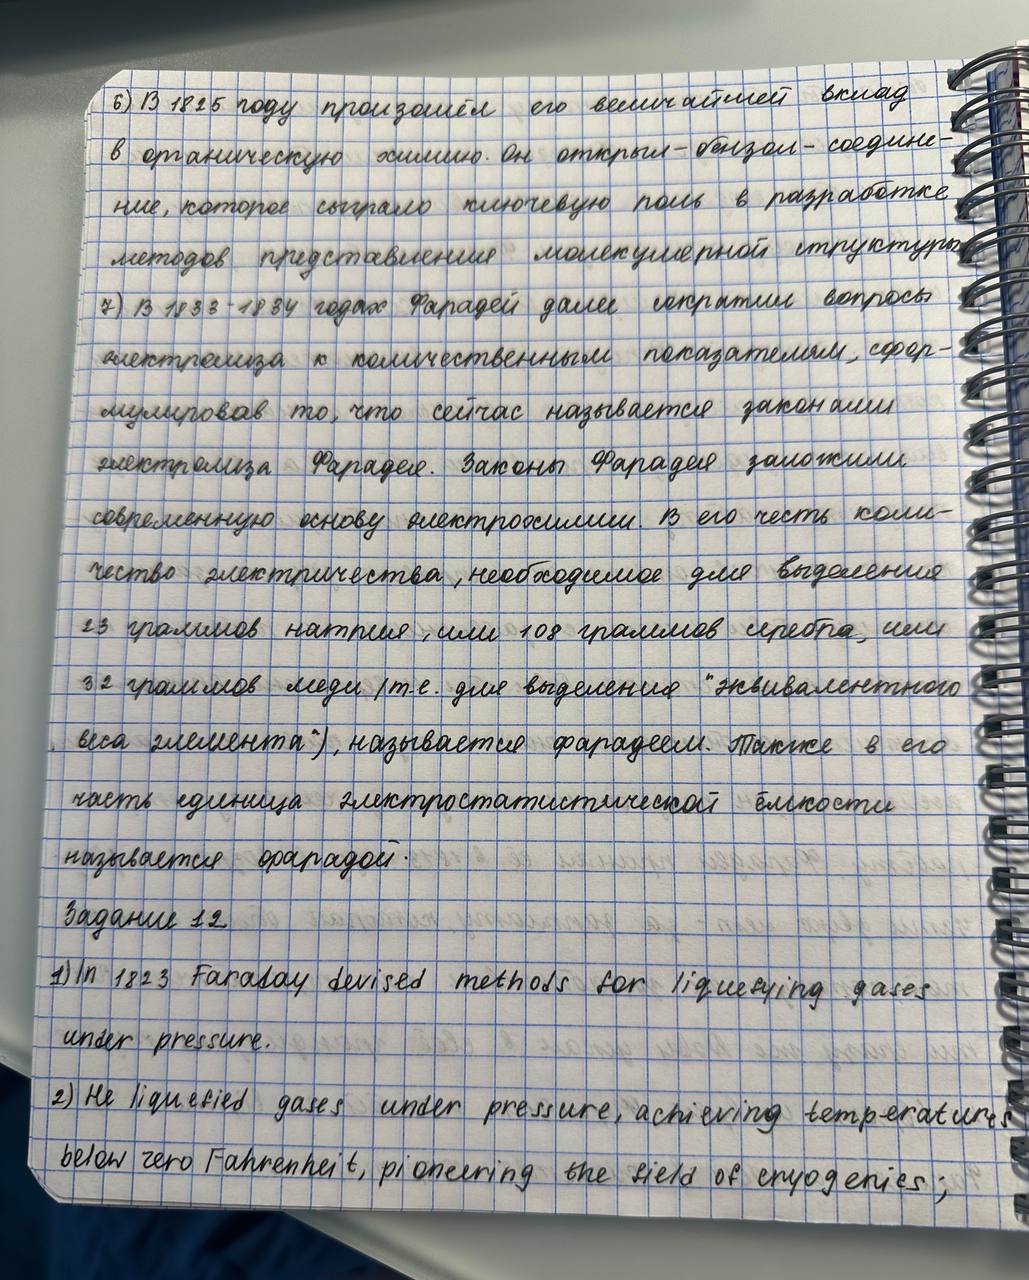 6) В 1825 году произошёл его величайший вклад
в органическую химию. Он открыл - бензол - соедине-
ние, которое сыграло ключевую роль в разработке
методов представления молекулярной структуры
7) В 1833-1834 годах Фарадей далее сократил вопросы
электролиза к количественным показателям, сфор-
мулировав то, что сейчас называется законами
электролиза Фарадея. Законы Фарадея заложили
современную основу электрохимии. В его честь коли-
чество электричества, необходимое для выделения
23 граммов натрия, или 108 граммов серебра, или
32 граммов меди (т.е. для выделения "эквивалентного
веса элемента"), называется фарадеем. Также в его
часть единица электростатистической ёмкости
называется фарадой.
Задание 12
1) In 1823 Faraday devised methods for liquefying gases
under pressure.
2) He liquefied gases under pressure, achieving temperatures
below zero Fahrenheit, pioneering the field of cryogenics;